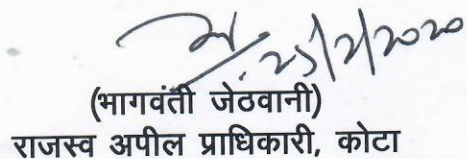 25/2/2020
(भागवंती जेठवानी)
राजस्व अपील प्राधिकारी, कोटा